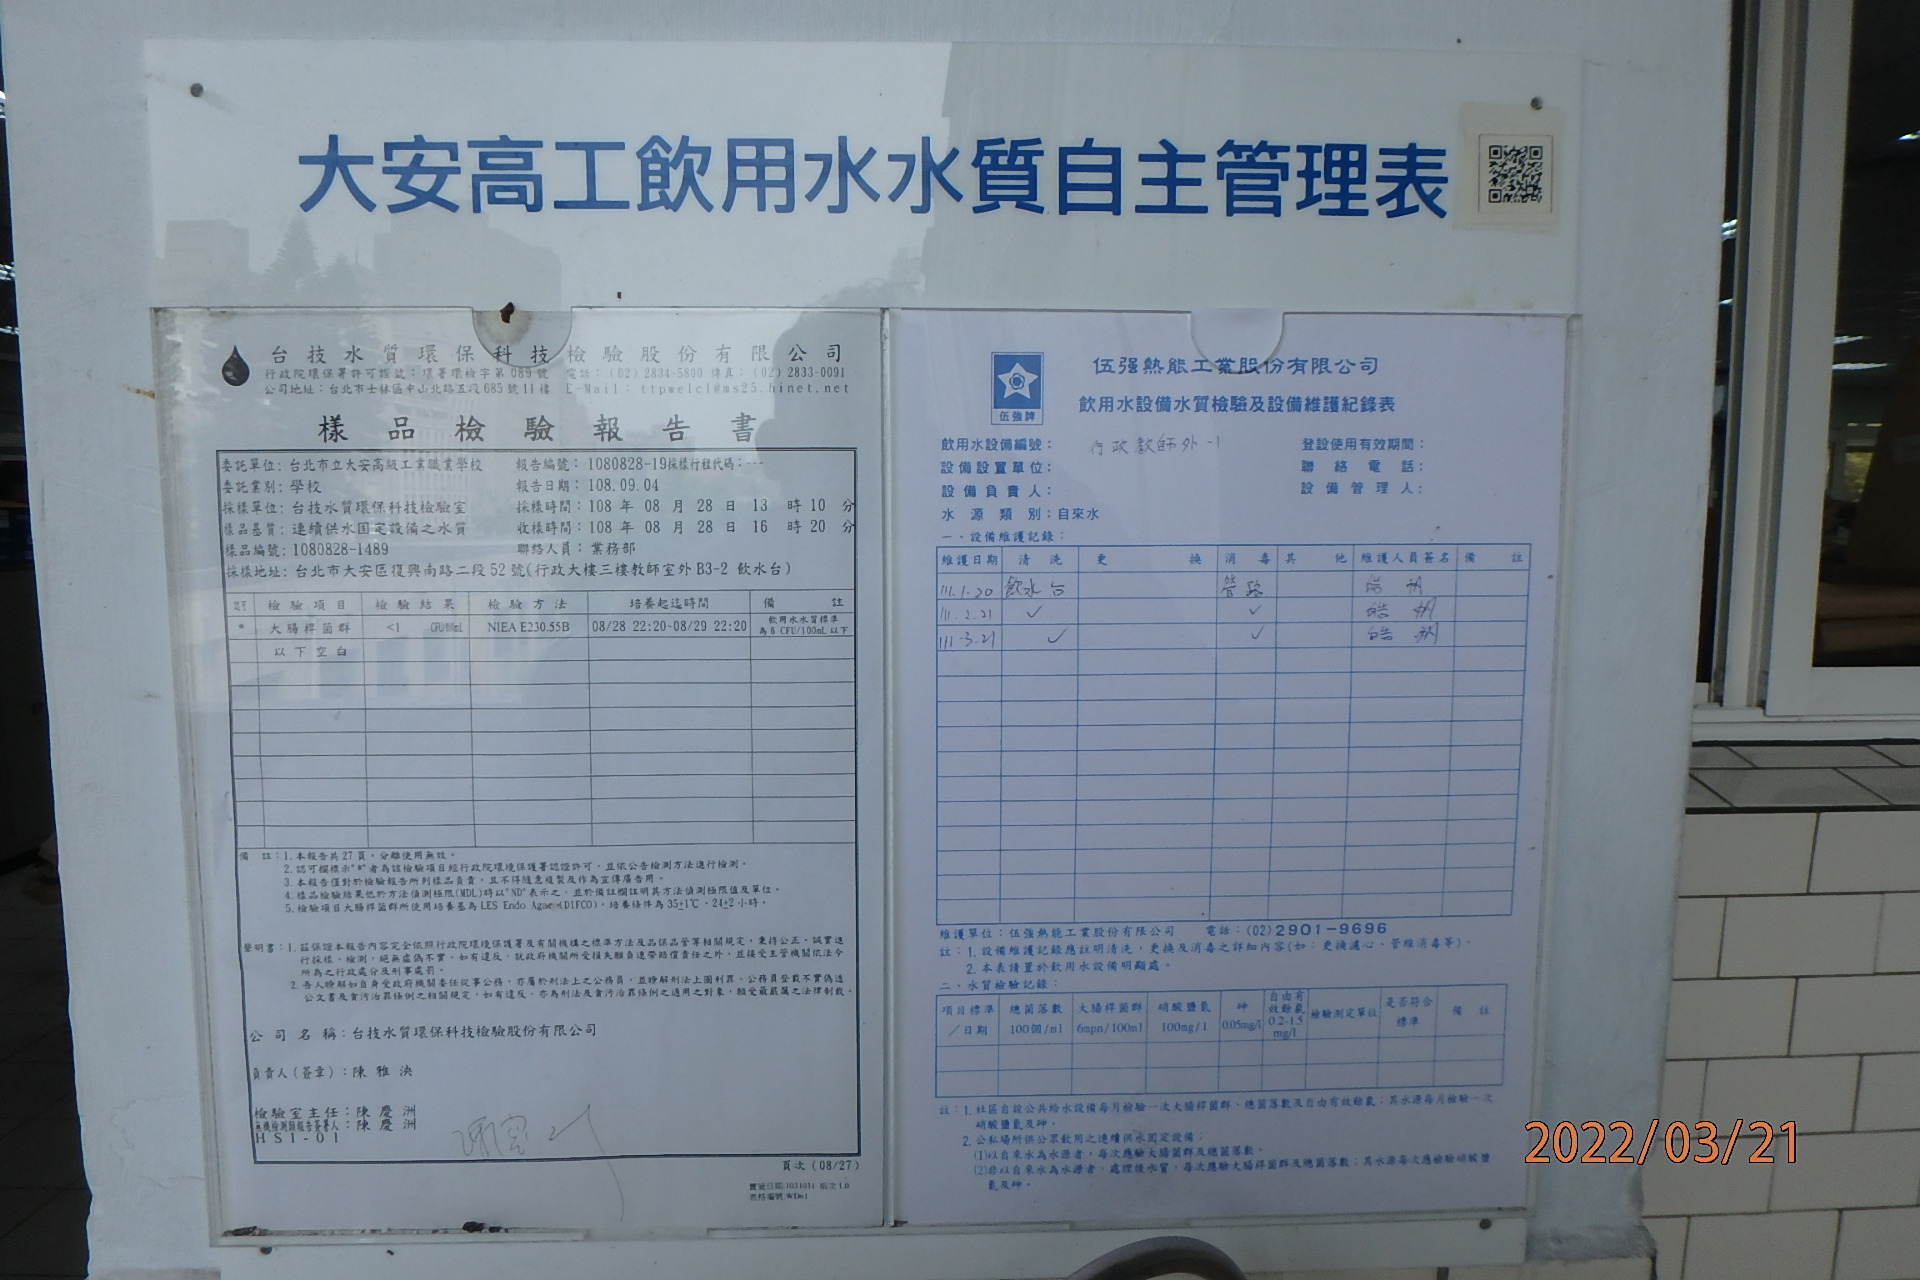 大安高工飲用水水質自主管理表
台技水質環保科技檢驗股份有限公司
行政院環保署許可證號：環署環檢字第089號 電話：(02)2834-5800 傳真：(02)2833-0091
公司地址：台北市士林區中山北路五段685號11樓 E-Mail: ttpwelcl@ms25.hinet.net
樣品檢驗報告書
委託單位：台北市立大安高級工業職業學校 報告編號：1080828-19採樣行程代碼：---
委託業別：學校 報告日期：108.09.04
採樣單位：台技水質環保科技檢驗室 採樣時間：108年08月28日13時10分
樣品基質：連續供水固定設備之水質 收樣時間：108年08月28日16時20分
樣品編號：1080828-1489 聯絡人員：業務部
採樣地址：台北市大安區復興南路二段52號(行政大樓三樓教師室外B3-2 飲水台)
認可 檢驗項目 檢驗結果 檢驗方法 培養起迄時間 備註
* 大腸桿菌群 <1 CFU/100mL NIEA E230.55B 08/28 22:20~08/29 22:20 飲用水水質標準為6 CFU/100mL以下
以下空白
備註：1.本報告共27頁，分離使用無效。
2.認可欄標示"*"者為該檢驗項目經行政院環境保護署認證許可，並依公告檢測方法進行檢測。
3.本報告僅對於檢驗報告所列樣品負責，且不得隨意複製及作為宣傳廣告用。
4.樣品檢驗結果低於方法偵測極限(MDL)時以"ND"表示之，並於備註欄註明其方法偵測極限值及單位。
5.檢驗項目大腸桿菌群所使用培養基為LES Endo Agar(DIFCO)，培養條件為35±1℃，24±2小時。
聲明書：1.茲保證本報告內容完全依照行政院環境保護署及有關機構之標準方法及品保品管等相關規定，秉持公正、誠實進
行採樣、檢測，絕無虛偽不實。如有違反，就政府機關所受損失願負連帶賠償責任之外，並接受主管機關依法令
所為之行政處分及刑事處罰。
2.吾人瞭解如自身受政府機關委任從事公務，亦屬於刑法上之公務員，並瞭解刑法上圖利罪、公務員登載不實偽造
公文書及貪污治罪條例之相關規定，如有違反，亦為刑法及貪污治罪條例之適用之對象，願受最嚴厲之法律制裁。
公司名稱：台技水質環保科技檢驗股份有限公司
負責人(簽章)：陳雅泱
檢驗室主任：陳慶洲
無機檢測類報告簽署人：陳慶洲
HS1-01
頁次(08/27)
實施日期:1031031 版次1.0
表格編號:WD61
伍強牌
伍强熱能工業股份有限公司
飲用水設備水質檢驗及設備維護紀錄表
飲用水設備編號：行政教師外-1 登設使用有效期間：
設備設置單位： 聯絡電話：
設備負責人： 設備管理人：
水源類別：自來水
一、設備維護記錄：
維護日期 清洗 更換 消毒 其他 維護人員簽名 備註
111.1.20 飲水台 管路
111.2.21 ✓ ✓
111.3.21 ✓ ✓
維護單位：伍强熱能工業股份有限公司 電話：(02)2901-9696
註：1.設備維護記錄應註明清洗、更換及消毒之詳細內容(如：更換濾心、管線消毒等)。
2.本表請置於飲用水設備明顯處。
二、水質檢驗記錄：
項目標準／日期 總菌落數100個/ml 大腸桿菌群6mpn/100ml 硝酸鹽氮100mg/l 砷0.05mg/l 自由有效餘氯0.2-1.5mg/l 檢驗測定單位 是否符合標準 備註
註：1.社區自設公共給水設備每月檢驗一次大腸桿菌群、總菌落數及自由有效餘氯；其水源每月檢驗一次
硝酸鹽氮及砷。
2.公私場所供公眾飲用之連續供水固定設備：
(1)以自來水為水源者，每次應驗大腸菌群及總菌落數。
(2)非以自來水為水源者，處理後水質，每次應驗大腸桿菌群及總菌落數；其水源每次應檢驗硝酸鹽
氮及砷。
2022/03/21